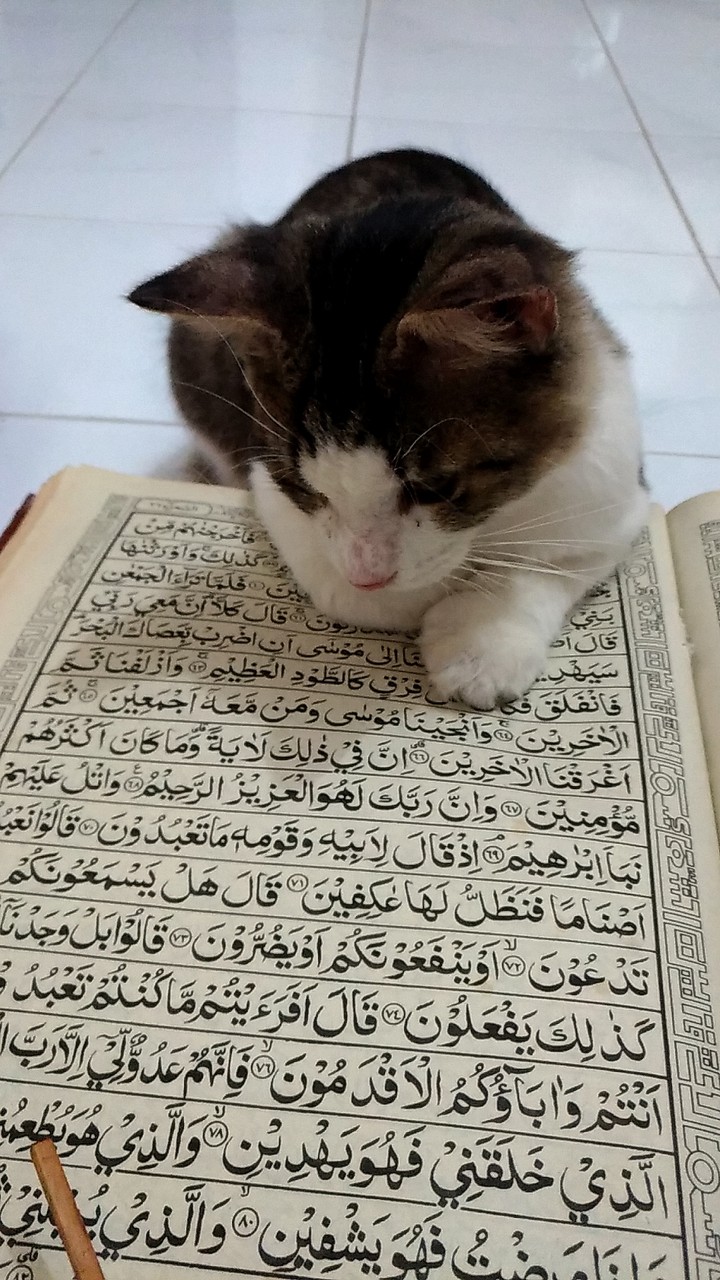 فَاَخْرَجْنٰهُمْ مِّنْ
كَذٰلِكَ وَاَوْرَثْنٰهَا
فَلَمَّا تَرَآءَ الْجَمْعٰنِ
قَالَ قَالَ كَلَّا اِنَّ مَعِيَ رَبِّيْ
سَيَهْدِيْنِ اِلٰى مُوْسٰٓى اَنِ اضْرِبْ بِّعَصَاكَ الْبَحْرَ
فَانْفَلَقَ فِرْقٍ كَالطَّوْدِ الْعَظِيْمِ ۝٦٣ وَاَزْلَفْنَا ثَمَّ
الْاٰخَرِيْنَ ۝٦٤ وَاَنْجَيْنَا مُوْسٰى وَمَنْ مَّعَهٗٓ اَجْمَعِيْنَ ۝٦٥ ثُمَّ
اَغْرَقْنَا الْاٰخَرِيْنَ ۝٦٦ اِنَّ فِيْ ذٰلِكَ لَاٰيَةً ؕ وَمَا كَانَ اَكْثَرُهُمْ
مُّؤْمِنِيْنَ ۝٦٧ وَاِنَّ رَبَّكَ لَهُوَ الْعَزِيْزُ الرَّحِيْمُ ۝٦٨ وَاتْلُ عَلَيْهِمْ
نَبَاَ اِبْرٰهِيْمَ ۝٦٩ اِذْ قَالَ لِاَبِيْهِ وَقَوْمِهٖ مَا تَعْبُدُوْنَ ۝٧٠ قَالُوْا نَعْبُدُ
اَصْنَامًا فَنَظَلُّ لَهَا عٰكِفِيْنَ ۝٧١ قَالَ هَلْ يَسْمَعُوْنَكُمْ
تَدْعُوْنَ ۝٧٢ اَوْ يَنْفَعُوْنَكُمْ اَوْ يَضُرُّوْنَ ۝٧٣ قَالُوْا بَلْ وَجَدْنَآ
كَذٰلِكَ يَفْعَلُوْنَ ۝٧٤ قَالَ اَفَرَءَيْتُمْ مَّا كُنْتُمْ تَعْبُدُ
اَنْتُمْ وَاٰبَآؤُكُمُ الْاَقْدَمُوْنَ ۝٧٦ فَاِنَّهُمْ عَدُوٌّ لِّيْٓ اِلَّا رَبَّ
الَّذِيْ خَلَقَنِيْ فَهُوَ يَهْدِيْنِ ۝٧٨ وَالَّذِيْ هُوَ يُطْعِمُنِيْ
وَاِذَا مَرِضْتُ فَهُوَ يَشْفِيْنِ ۝٨٠ وَالَّذِيْ يُمِيْتُنِيْ